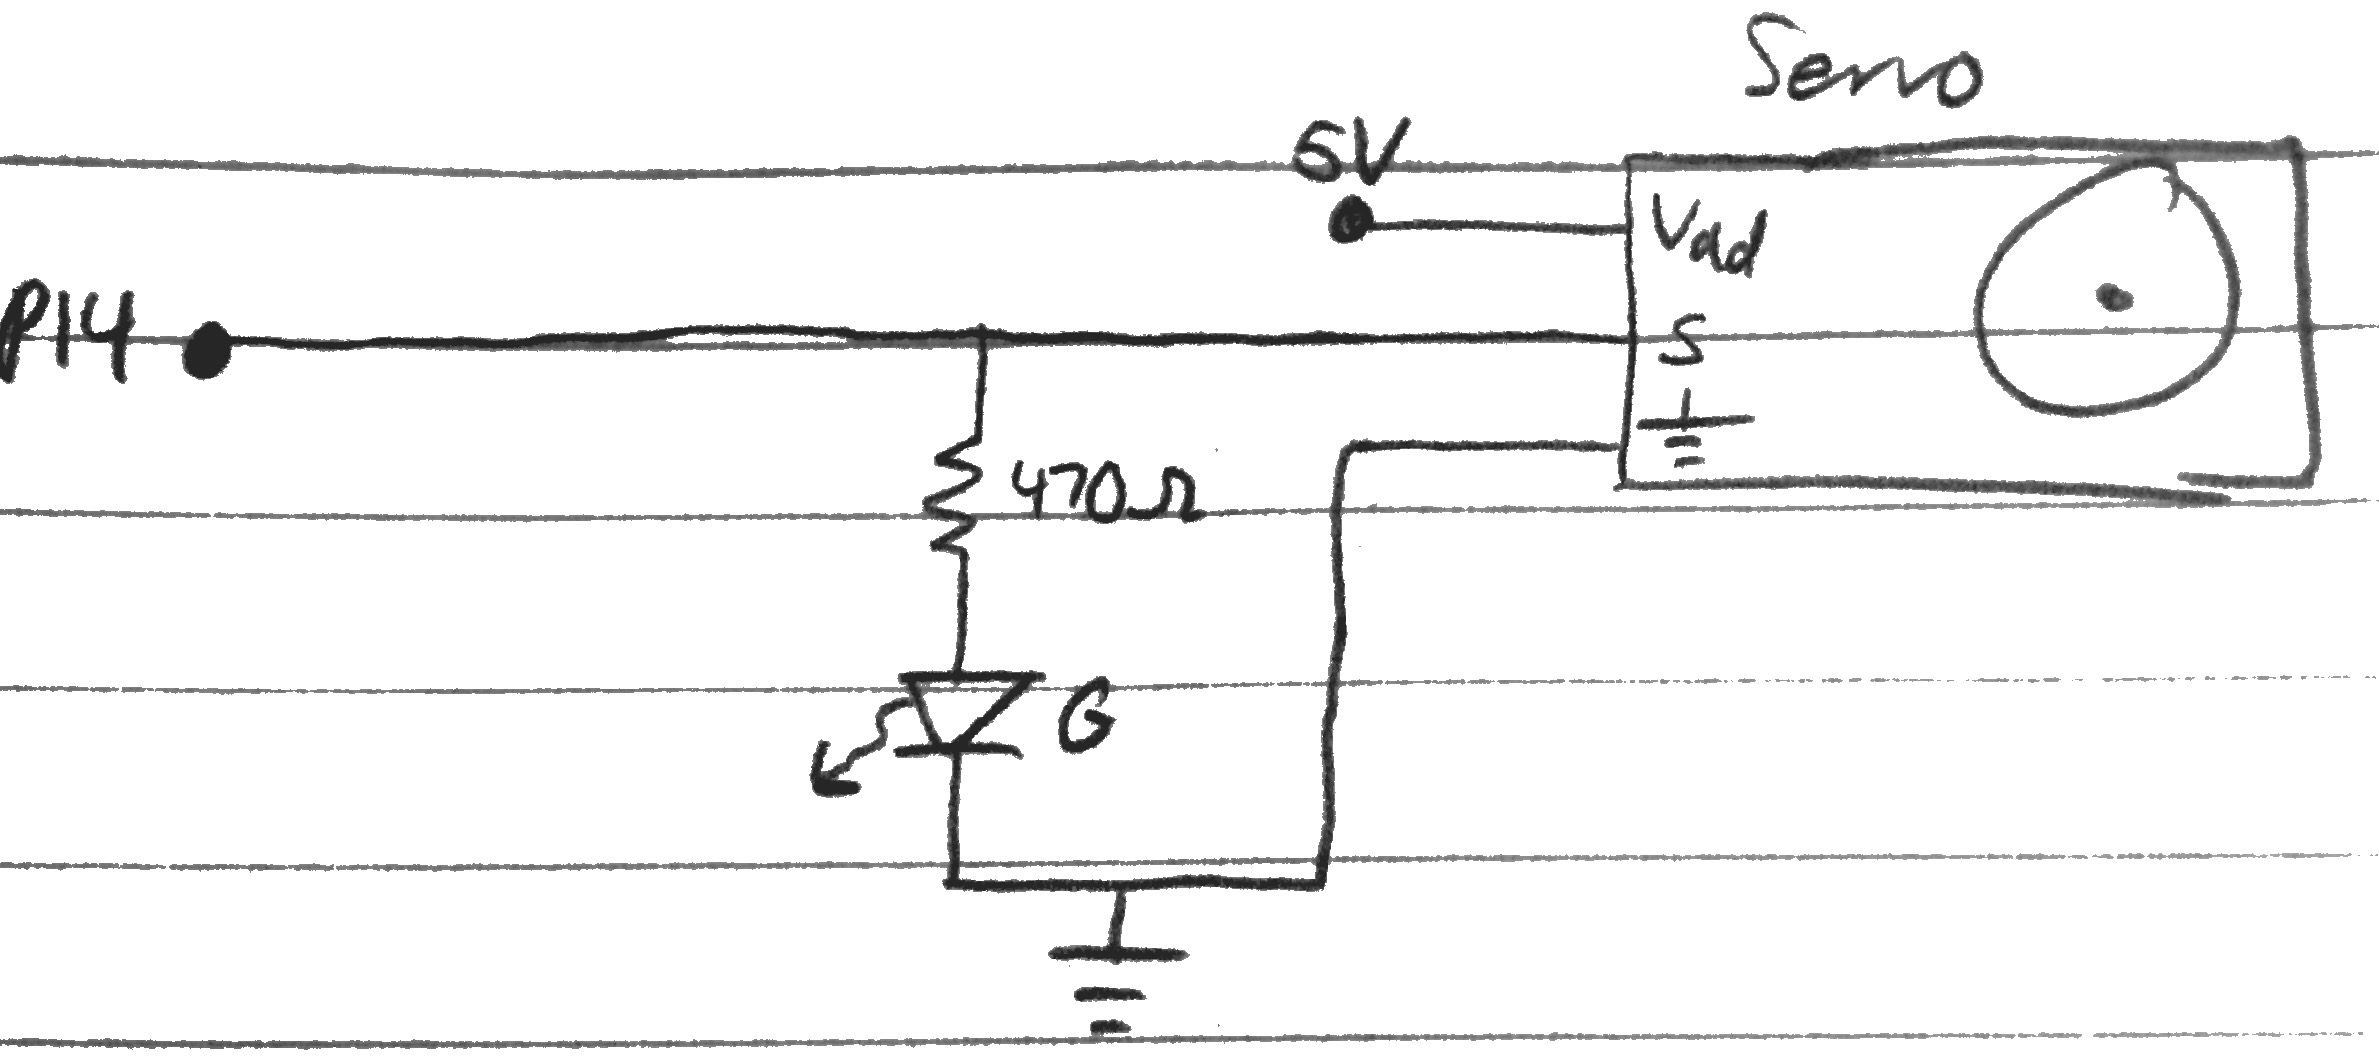 Servo
5V
Vdd
P14
S
470Ω
G